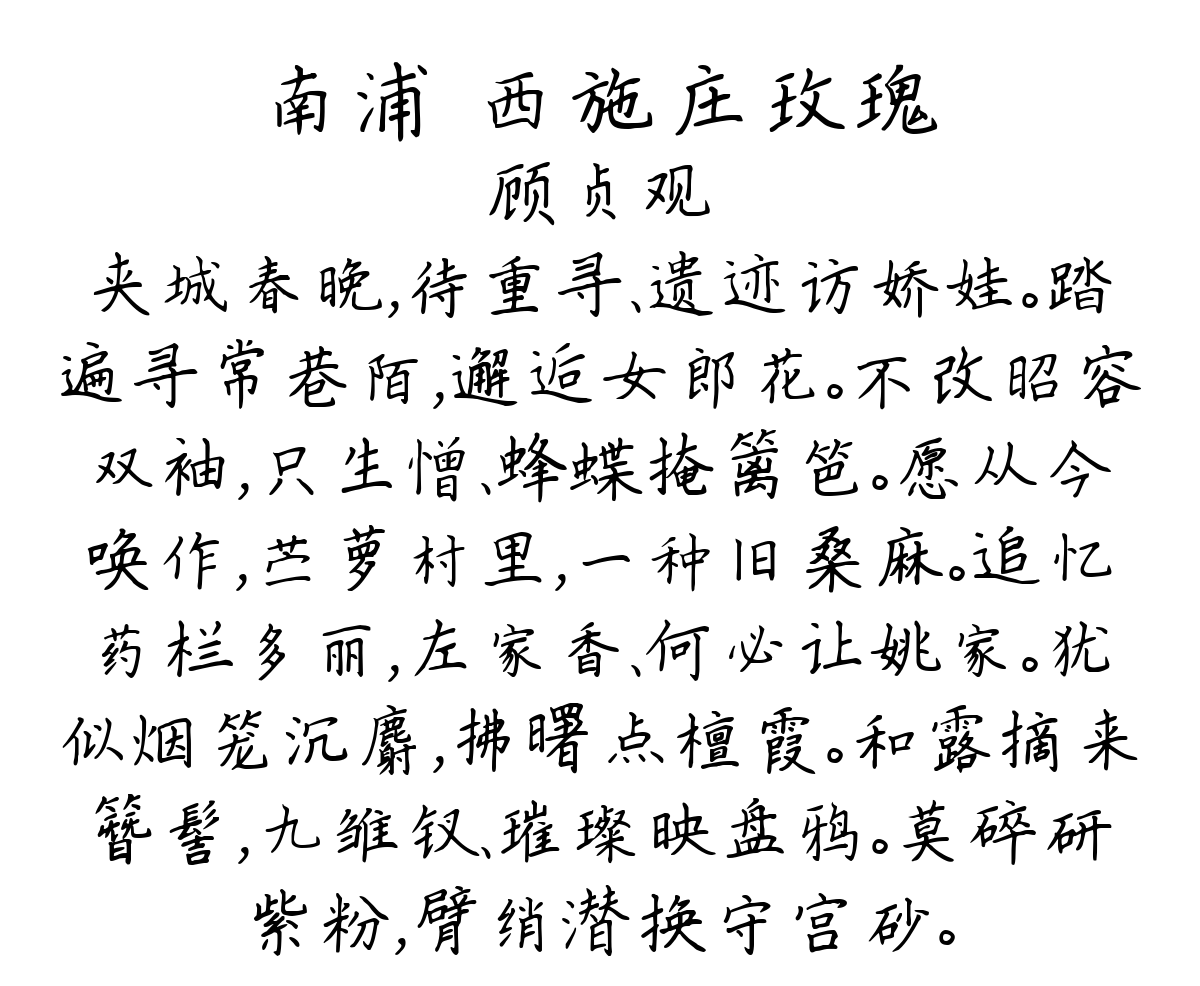 南浦 西施庄玫瑰
顾贞观
夹城春晚,待重寻、遗迹访娇娃。踏
遍寻常巷陌,邂逅女郎花。不改昭容
双袖,只生憎、蜂蝶掩篱笆。愿从今
唤作,苎萝村里,一种旧桑麻。追忆
药栏多丽,左家香、何必让姚家。犹
似烟笼沉麝,拂曙点檀霞。和露摘来
簪髻,九雏钗、璀璨映盘鸦。莫碎研
紫粉,臂绡潜换守宫砂。